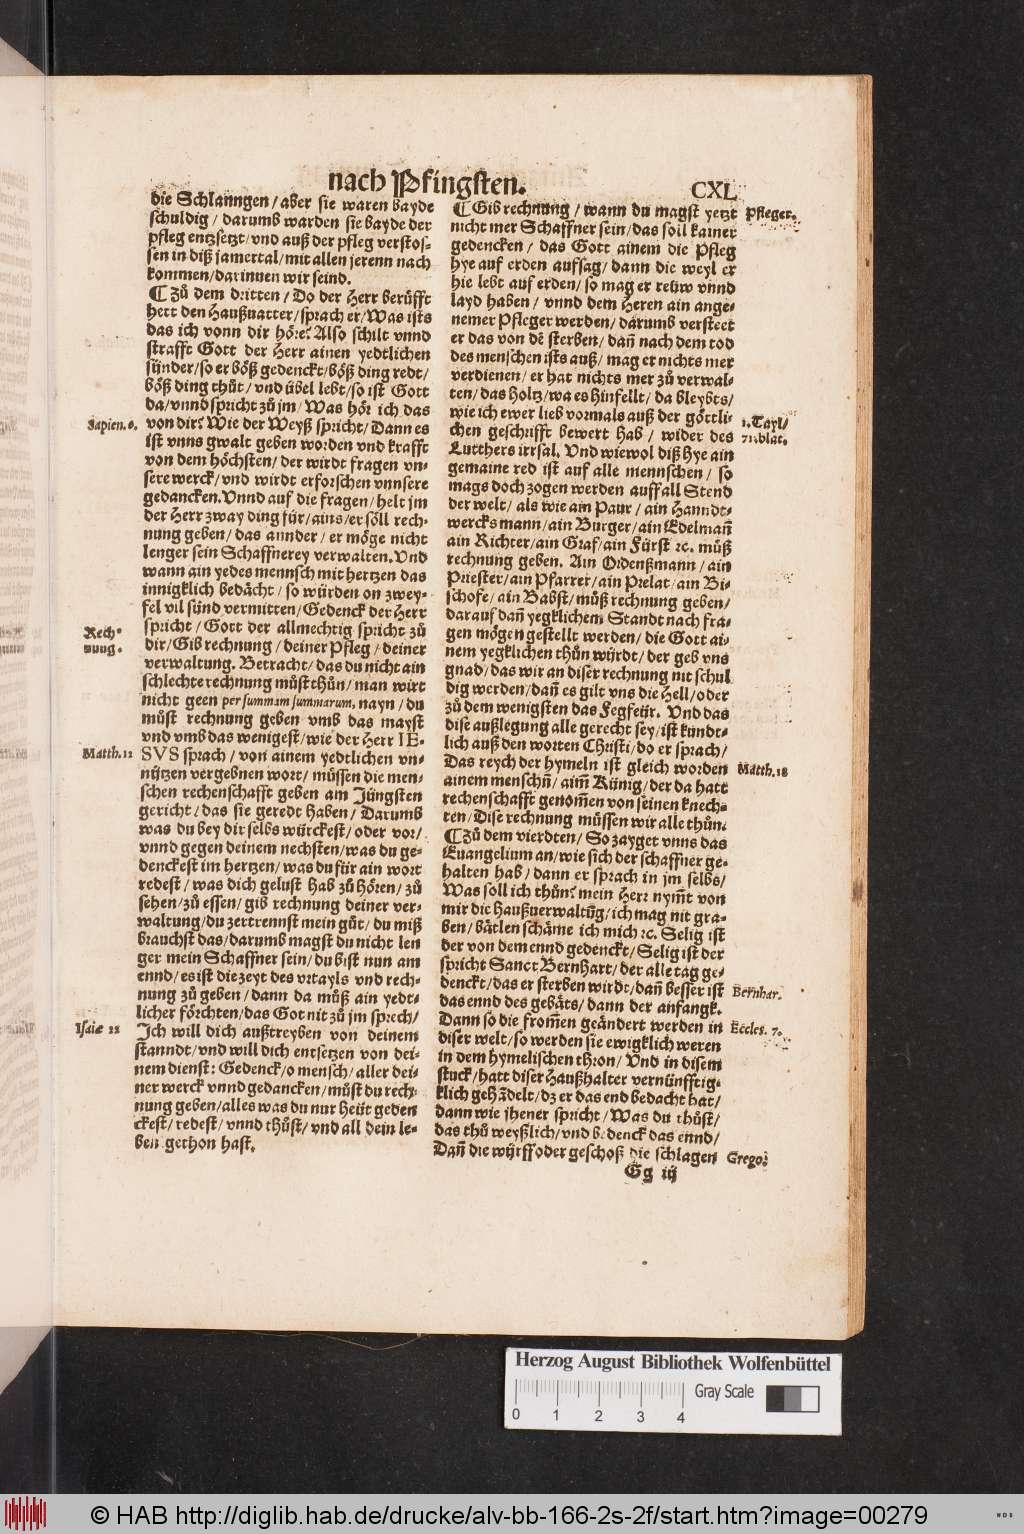 nach Pfingsten.
CXL
die Schlanngen / aber sie waren bayde
schuldig / darumb warden sie bayde der
pfleg entzsetzt / vnd auß der pfleg verstos-
sen in diß jamertal / mit allen jerenn nach
kommen / darinnen wir seind.
¶ Zů dem dritten / Do der Herr berůfft
hett den Haußuatter / sprach er / Was ists
das ich vonn dir höre? Also schilt vnnd
strafft Gott der Herr ainen yedtlichen
sünder / so er böß gedenckt / böß ding redt /
böß ding thůt / vnd übel lebt / so ist Gott
da / vnnd spricht zů jm / Was hör ich das
Sapien. 6.
von dir? Wie der Weyß spricht / Dann es
ist vnns gwalt geben worden vnd krafft
von dem höchsten / der wirdt fragen vn-
sere werck / vnd wirdt erforschen vnnsere
gedancken. Vnnd auf die fragen / helt jm
der Herr zway ding für / ains / er söll rech-
nung geben / das annder / er möge nicht
lenger sein Schaffnerey verwalten. Vnd
wann ain yedes mennsch mit hertzen das
innigklich bedächt / so würden on zwey-
fel vil sünd vermitten / Gedenck der Herr
Rech-
nung.
spricht / Gott der allmechtig spricht zů
dir / Gib rechnung / deiner Pfleg / deiner
verwaltung. Betracht / das du nicht ain
schlechte rechnung můst thůn / man wirt
nicht geen per summam summarum, nayn / du
můst rechnung geben vmb das mayst
vnd vmb das wenigest / wie der Herr IE-
Matth. 12
SVS sprach / von ainem yedtlichen vn-
nützen vergebnen wort / müssen die men-
schen rechenschafft geben am Jüngsten
gericht / das sie geredt haben / Darumb
was du bey dir selbs würckest / oder vor /
vnnd gegen deinem nechsten / was du ge-
denckest im hertzen / was du für ain wort
redest / was dich gelust hab zů hören / zů
sehen / zů essen / gib rechnung deiner ver-
waltung / du zertrennst mein gůt / du miß
brauchst das / darumb magst du nicht len
ger mein Schaffner sein / du bist nun am
ennd / es ist die zeyt des vrtayls vnd rech-
nung zů geben / dann da můß ain yedt-
licher förchten / das Got nit zů jm sprech /
Isaie 22
Ich will dich außtreyben von deinem
stanndt / vnd will dich entsetzen von dei-
nem dienst: Gedenck / o mensch / aller dei-
ner werck vnnd gedancken / můst du rech-
nung geben / alles was du nur heüt geden
ckest / redest / vnnd thůst / vnd all dein le-
ben gethon hast.
¶ Gib rechnung / wann du magst yetzt
Pfleger.
nicht mer Schaffner sein / das soll kainer
gedencken / das Gott ainem die Pfleg
hye auf erden aufsag / dann die weyl er
hie lebt auf erden / so mag er rehw vnnd
layd haben / vnnd dem Heren ain ange-
nemer Pfleger werden / darumb versteet
er das von dē sterben / dañ nach dem tod
des menschen ists auß / mag er nichts mer
verdienen / er hat nichts mer zů verwal-
ten / das holtz / wa es hinfellt / da bleybts /
wie ich ewer lieb vormals auß der göttli
1. Tayl /
71. blat.
chen geschrifft bewert hab / wider des
Lutthers irrsal. Vnd wiewol diß hye ain
gemaine red ist auf alle mennschen / so
mags doch zogen werden auff all Stend
der welt / als wie ain Paur / ain Hanndt-
wercksmann / ain Burger / ain Edelmañ
ain Richter / ain Graf / ain Fürst ꝛc. můß
rechnung geben. Ain Ordenßmann / ain
Priester / ain Pfarrer / ain Prelat / ain Bi-
schofe / ain Babst / můß rechnung geben /
darauf dañ yegklichem Standt nach fra-
gen mögen gestellt werden / die Gott ai-
nem yegklichen thůn würdt / der geb vns
gnad / das wir an diser rechnung nit schul
dig werden / dañ es gilt vns die Hell / oder
zů dem wenigsten das Fegfeür. Vnd das
dise außlegung alle gerecht sey / ist kundt-
lich auß den worten Christi / do er sprach /
Das reych der hymeln ist gleich worden
Matth. 18
ainem menschñ / aim̃ Künig / der da hatt
rechenschafft genom̃en von seinen knech-
ten / Dise rechnung müssen wir alle thůn.
¶ Zů dem vierdten / So zayget vnns das
Euangelium an / wie sich der schaffner ge-
halten hab / dann er sprach in jm selbs /
Was soll ich thůn? mein Herr nym̃t von
mir die Haußuerwaltũg / ich mag nit gra-
ben / bätlen schäme ich mich ꝛc. Selig ist
der von dem ennd gedenckt / Selig ist der
spricht Sanct Bernhart / der alle tag ge-
denckt / das er sterben wirdt / dañ besser ist
Bernhar.
das ennd des gebäts / dann der anfangk.
Dann so die from̃en geändert werden in
Eccles. 7.
diser welt / so werden sie ewigklich weren
in dem hymelischen thron / Vnd in disem
stuck / hatt diser Haußhalter vernünfftig-
klich gehãdelt / dz er das end bedacht hat /
dann wie jhener spricht / Was du thůst /
das thů weyßlich / vnd bedenck das ennd /
Dañ die würff oder geschoß die schlagen
Grego.
Gg iij
Herzog August Bibliothek Wolfenbüttel
Gray Scale
0 1 2 3 4
© HAB http://diglib.hab.de/drucke/alv-bb-166-2s-2f/start.htm?image=00279